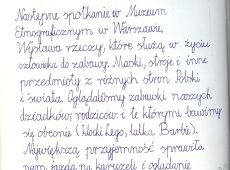 Następne spotkanie w Muzeum
Etnograficznym w Warszawie.
Wystawa rzeczy, które służą w życiu
człowieka do zabawy. Maski, stroje i inne
przedmioty z różnych stron Polski
i świata. Oglądaliśmy zabawki naszych
dziadków, rodziców i te którymi bawimy
się obecnie (klocki Lego, lalka Barbie).
Największą przyjemność sprawiła
nam jazda na karuzeli i oglądanie